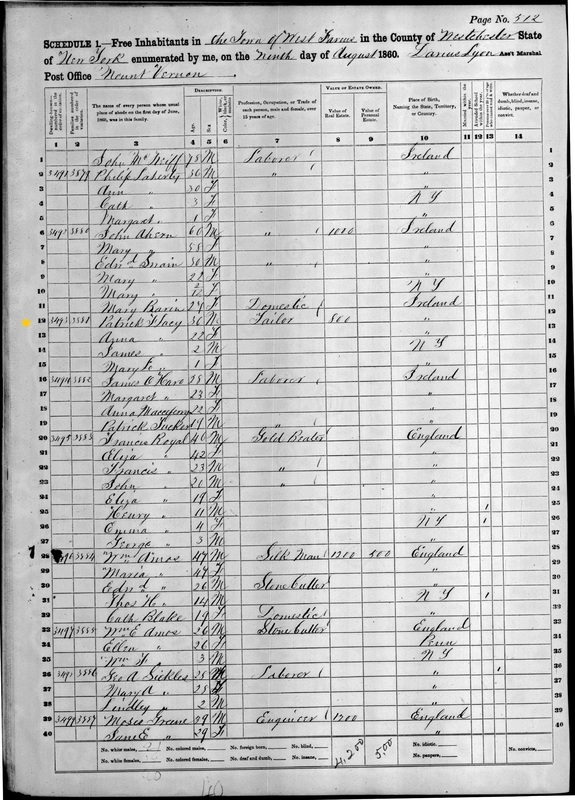 Page No. 512
SCHEDULE 1.—Free Inhabitants in the Town of West Farms in the County of Westchester State
of New York enumerated by me, on the Ninth day of August 1860. Darius Lyon Ass't Marshal
Post Office Mount Vernon
DESCRIPTION. VALUE OF ESTATE OWNED.
The name of every person whose usual place of abode on the first day of June, 1860, was in this family. Age. Sex. Profession, Occupation, or Trade of each person, male and female, over 15 years of age. Value of Real Estate. Value of Personal Estate. Place of Birth, Naming the State, Territory, or Country. Whether deaf and dumb, blind, insane, idiotic, pauper, or convict.
1 2 3 4 5 6 7 8 9 10 11 12 13 14
1 John 75 M Laborer Ireland 1
2 Philip 30 M " " 2
3 Ann " 30 F " 3
4 Cath " 3 F N Y 4
5 Margaret " 1 F " 5
6 3880 John Ahern 60 M " 1000 Ireland 6
7 Mary " 58 F " 7
8 Edwd Swain 30 M " " 8
9 Mary " 22 F " 9
10 Mary " F N Y 10
11 Mary 24 F Domestic Ireland 11
12 3493 3881 Patrick Stacy 30 M Tailor 800 " 12
13 Anna " 22 F " 13
14 James " 2 M N Y 14
15 Mary E " 1 F " 15
16 3494 3882 James O Hare 28 M Laborer Ireland 16
17 Margaret " 23 F " 17
18 Anna 22 F " 18
19 Patrick Tucker 19 M " " 19
20 3495 3883 Francis Royal 40 M Gold Beater England 20
21 Eliza " 42 F " 21
22 Francis " 23 M " " 22
23 John " 21 M " " 23
24 Eliza " 19 F " 24
25 Henry " 11 M " 1 25
26 Emma " 4 F N Y 1 26
27 George " 3 M " 27
28 3884 Wm Amos 47 M Silk Man 1200 500 England 28
29 Maria " 47 F " 29
30 Edwd " 26 M Stone Cutter " 30
31 Thos H " 14 M N Y 1 31
32 Cath Blake 19 F Domestic " 32
33 3497 3885 Wm E Amos 26 M Stone Cutter England 33
34 Ellen " 26 F Penn 34
35 Wm F " 3 M N Y 35
36 3498 3886 Geo A Sickles 28 M Laborer " 36
37 Mary A " 28 F " 37
38 Lindley " 2 M " 38
39 3499 3887 Moses Greene 29 M Engineer 1200 England 39
40 Jane E " 29 F " 40
No. white males, No. colored males, No. foreign born, No. blind, No. idiotic, No. convicts,
No. white females, No. colored females, No. deaf and dumb, No. insane, 4,200 500 No. paupers,